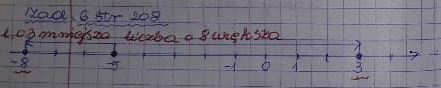 Zad 6 str 208
mniejsza liczba o 8 większa
-8 -5 -1 0 1 3